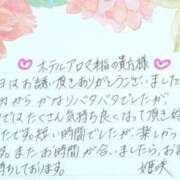 ホテルアロマ本館の貴方様
日はお誘い頂きありがとうございました
からがはバタバタでしたが、
ではたくさん気持ち良くなって頂き
たです。短い時間でしたが、楽しかっ
す。またお時間が合いましたら、お
待ちしております。
姫咲